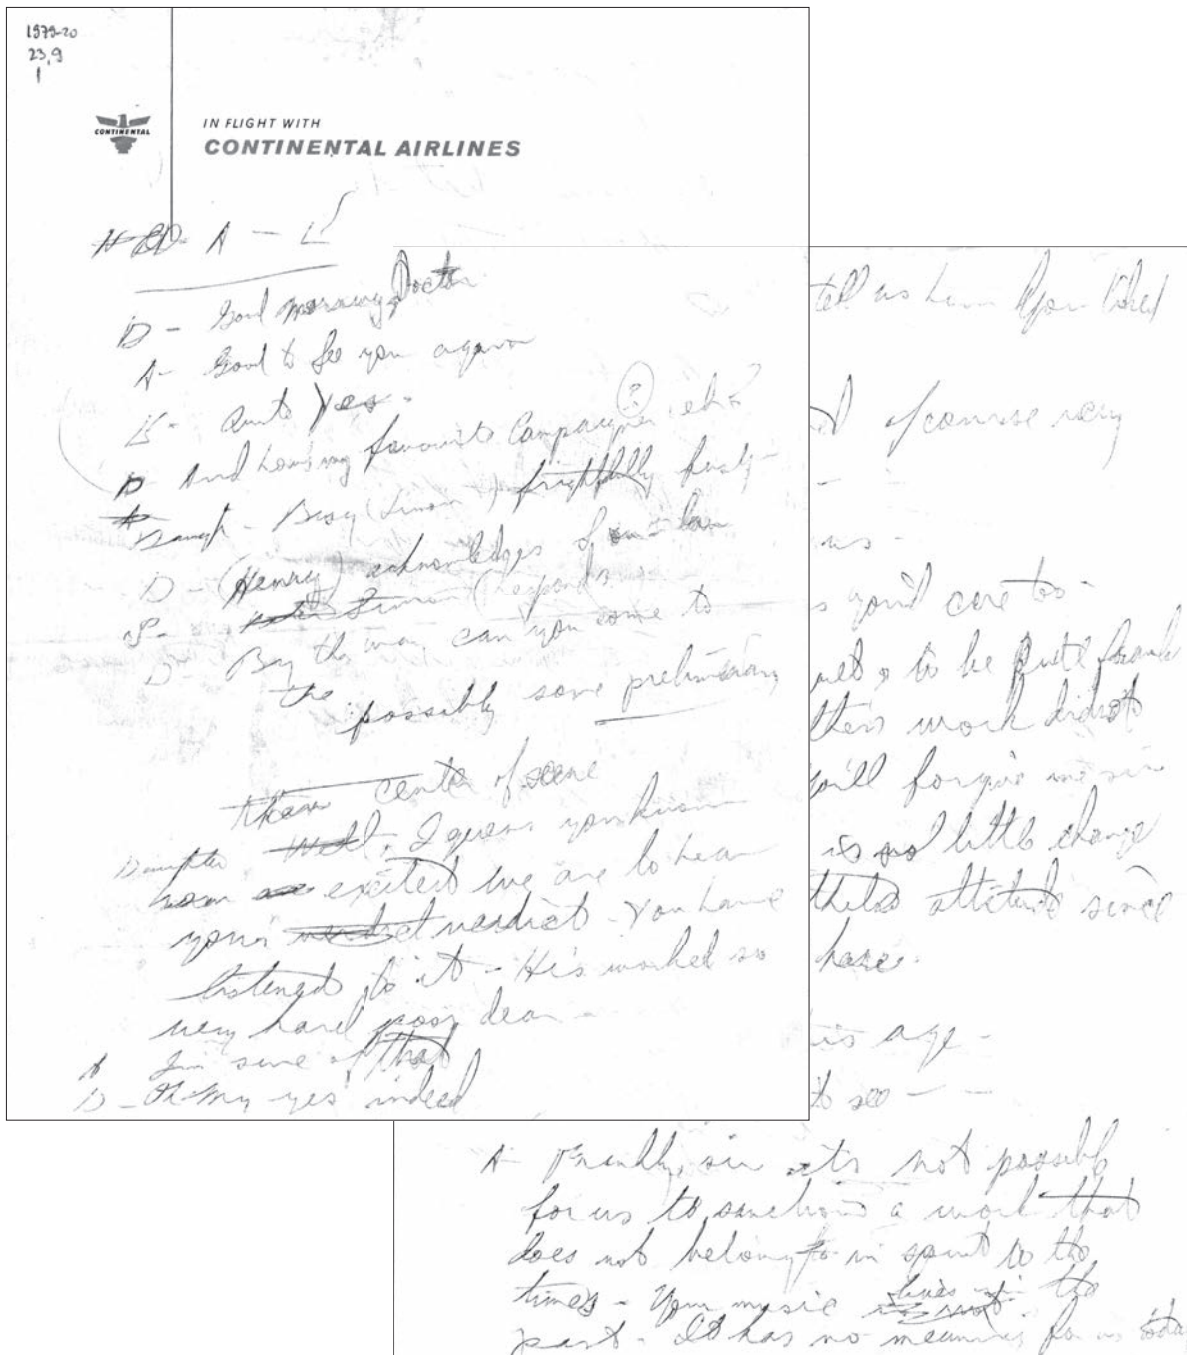 1979-20
23,9
1
CONTINENTAL
IN FLIGHT WITH
CONTINENTAL AIRLINES
A -
D - Good morning Doctor
A - Good to see you again
Quite Yes -
D And how's my favourite Campaigner eh?
Busy (Simon) frightfully busy -
D - (Henry) acknowledges
S - Simon (responds)
D - By the way can you come to
the
possibly some preliminary
center of scene
Daughter Well, I guess you know
how excited we are to hear
your verdict - You have
listened to it - He's worked so
very hard poor dear -
A I'm sure of that
D - Oh my yes indeed
tell us how you liked
of course very
us -
to be quite frank
work didn't
you'll forgive me sir
is no little change
attitude since
here.
his age -
to see - -
A - Frankly, sir its not possible
for us to sanction a work that
does not belong in spirit to the
times - Your music lives in the
past - It has no meaning for us today